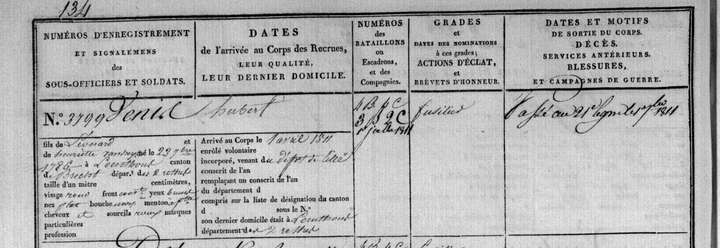 134
NUMÉROS D'ENREGISTREMENT
ET SIGNALEMENS
des
SOUS-OFFICIERS ET SOLDATS.
DATES
de l'arrivée au Corps des Recrues,
LEUR QUALITÉ,
LEUR DERNIER DOMICILE.
NUMÉROS
des
BATAILLONS
ou
Escadrons,
et des
Compagnies.
GRADES
et
DATES DES NOMINATIONS
à ces grades;
ACTIONS D'ÉCLAT,
et
BRÉVETS D'HONNEUR.
DATES ET MOTIFS
DE SORTIE DU CORPS.
DÉCÈS.
SERVICES ANTÉRIEURS.
BLESSURES,
ET CAMPAGNES DE GUERRE.
N.º 3799 Denis hubert
fils de Léonard et
de henriette et né le 22 9bre
1786 à canton
de dépar.t des 2 nethes
taille d'un mètre centimètres,
visage rond front yeux bruns
nez plat bouche menton
cheveux et sourcils marques
particulières
profession
Arrivé au Corps le 1 avril 1811
enrôlé volontaire
incorporé, venant du dépôt de
conscrit de l'an
remplaçant un conscrit de l'an
du département d
compris sur la liste de désignation du canton
d sous le N.º
son dernier domicile était à
département des 2 nethes
4 B 4 C
3 B 2 C
1er juillet 1811
fusilier
Passé au 21e ligne le 1 7bre 1811